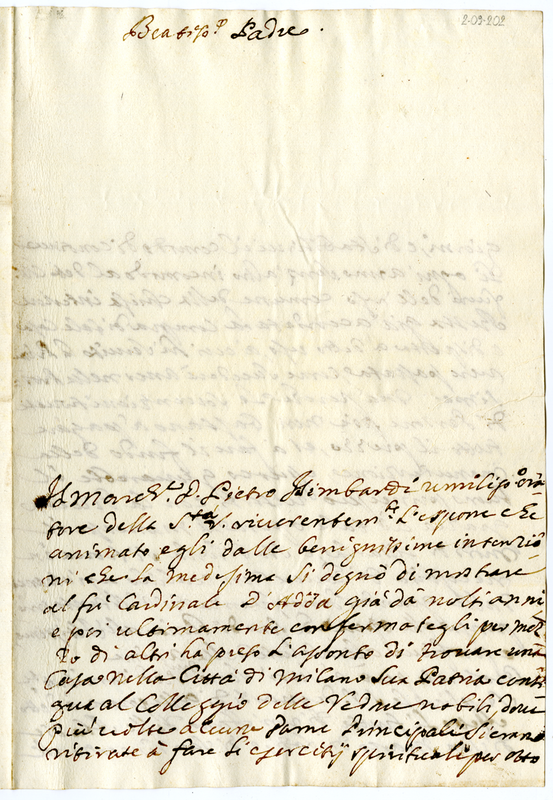 2-09-202
Beatiss.º Padre.
Il March.e D. Pietro Isimbardi umiliss.º ora
tore della S.ta V. riverentem.te L'espone che
animato egli dalle benignissime intenzio
ni che la medesima si degnò di mostrare
al fù Cardinale D'Adda già da molti anni
e poi ultimamente confermategli per mez
zo di altri ha preso l'assonto di trovare una
Casa nella Città di Milano sua Patria conti
gua al Colleggio delle Vedue nobili doue
più uolte alcune Dame Principali si erano
ritirate à fare li esercitij spirituali per otto